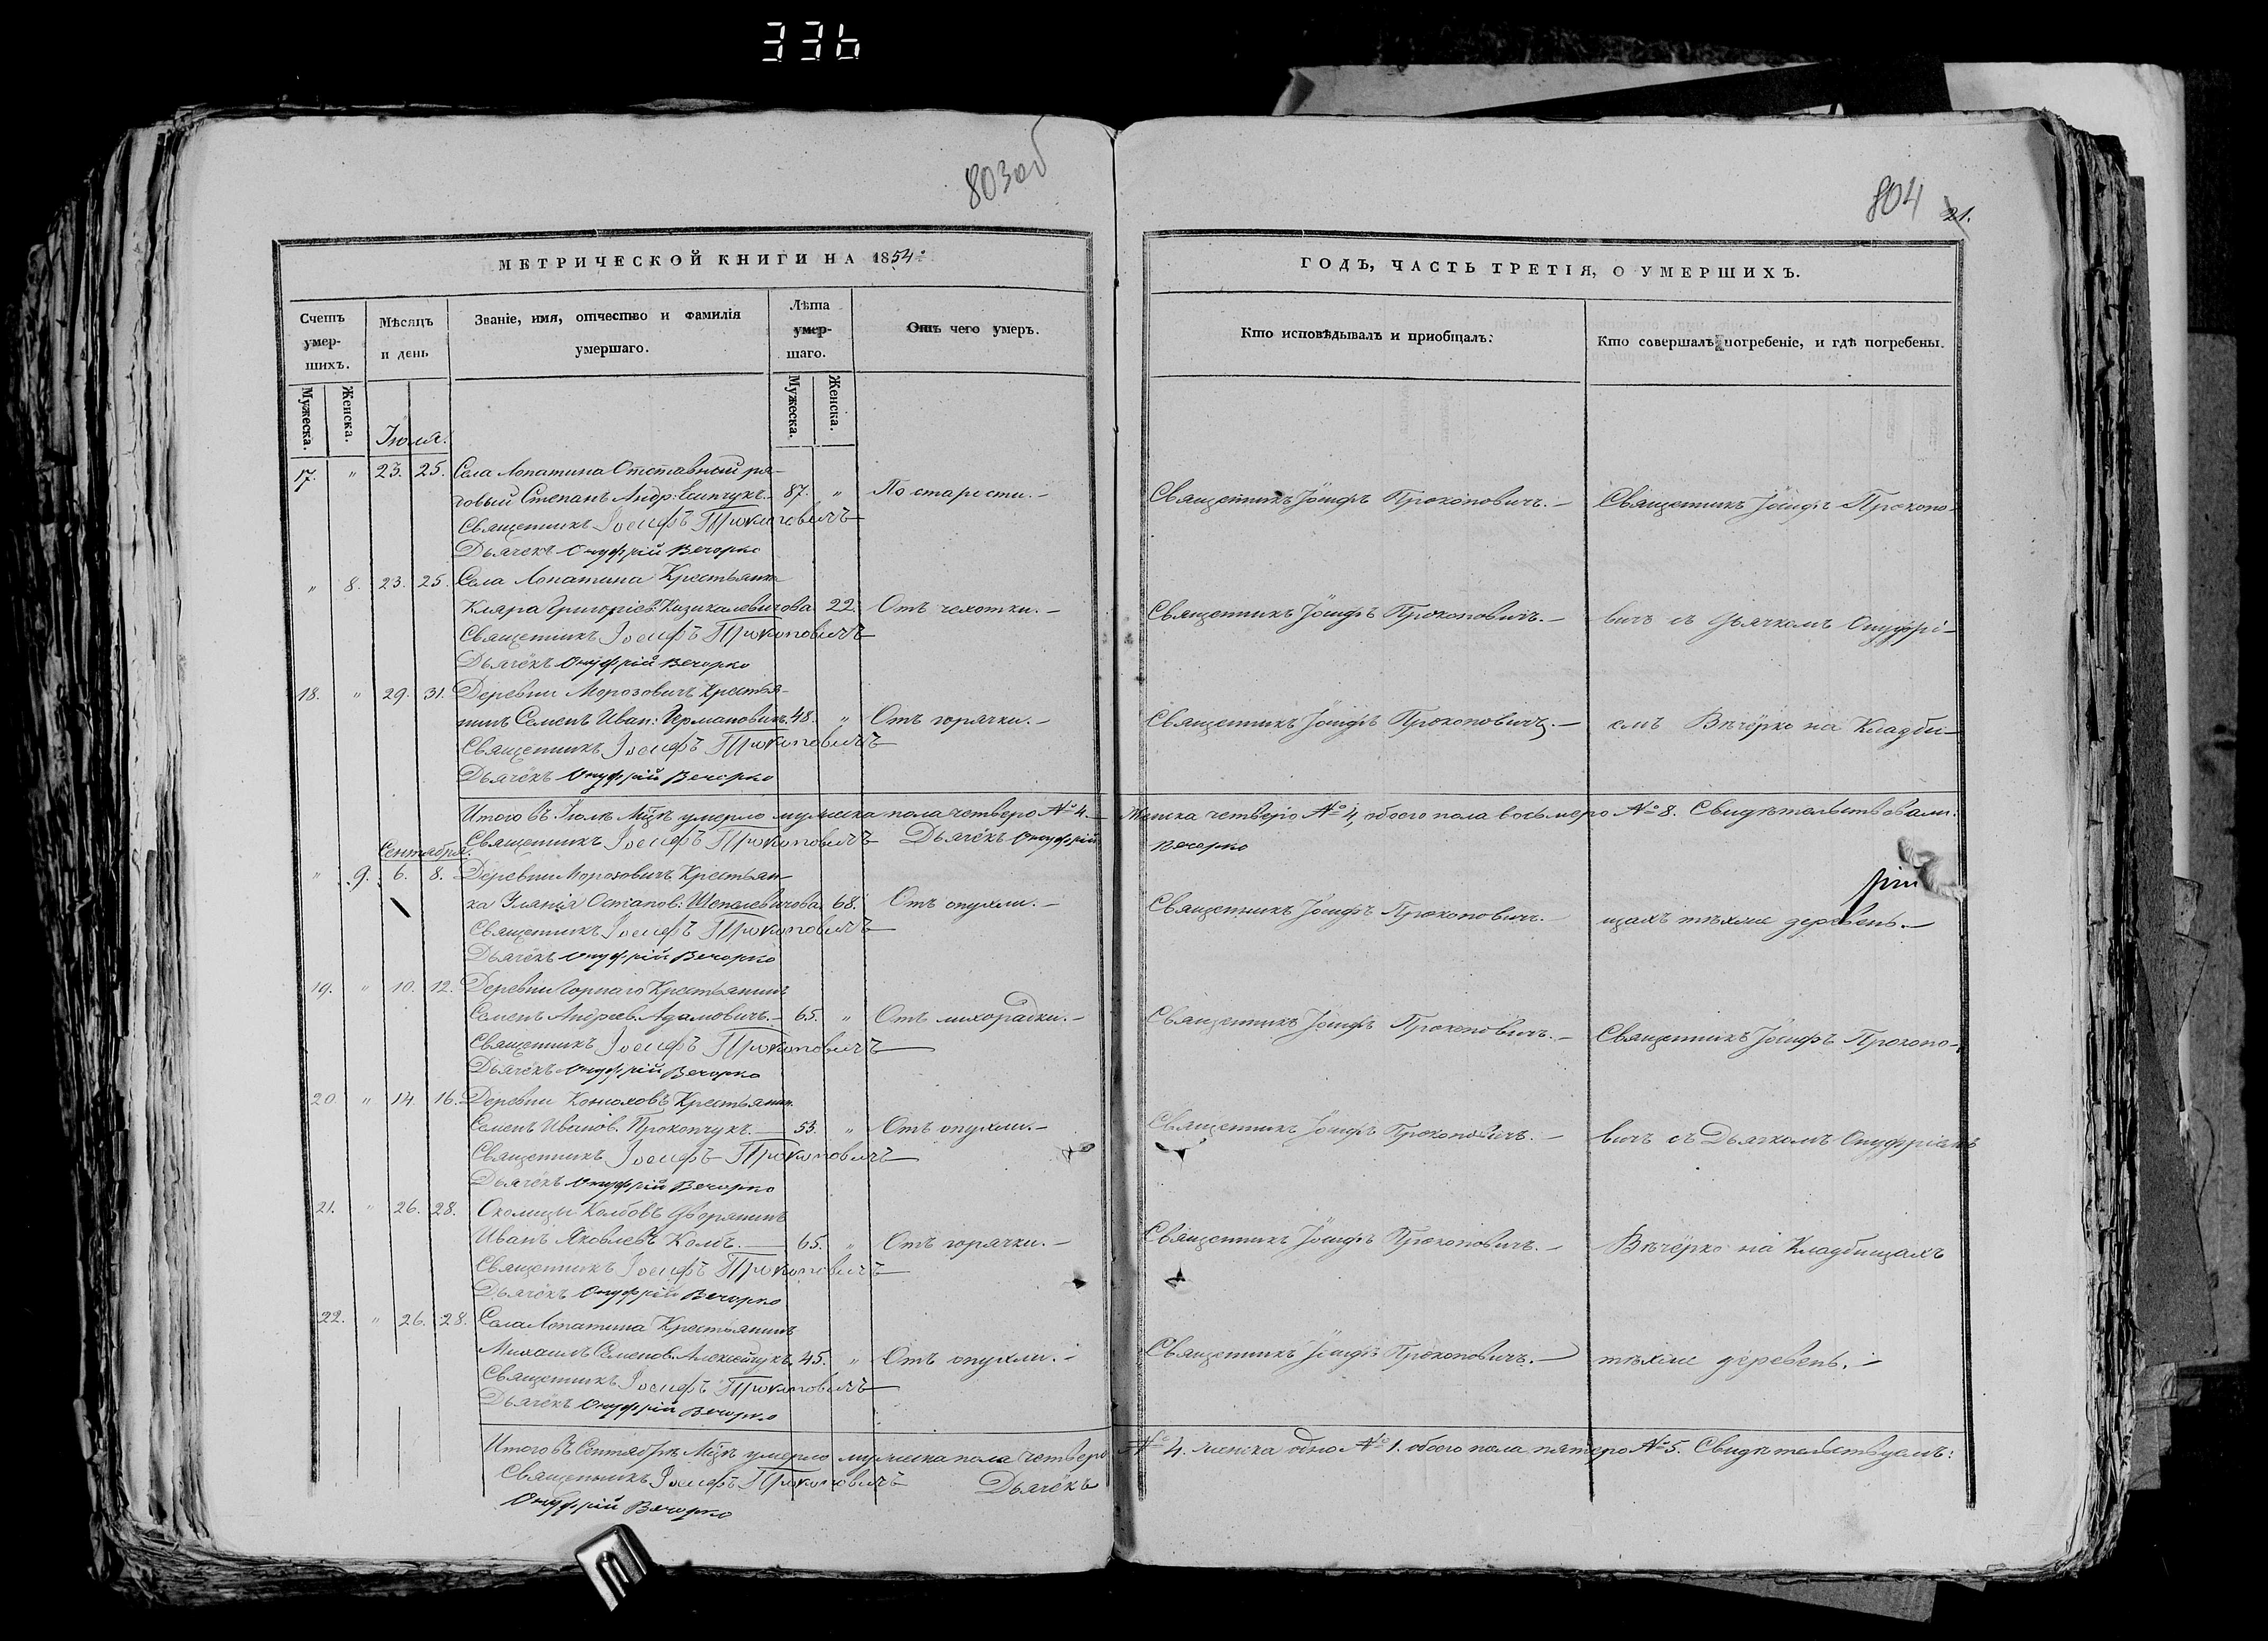 336
803об
МЕТРИЧЕСКОЙ КНИГИ НА 1854.
Счетъ умер-шихъ.
Мужеска.
Женска.
Мѣсяцъ и день
Званіе, имя, отчество и фамилія умершаго.
Лѣта умер-шаго.
Мужеска.
Женска.
Отъ чего умеръ.
Іюля.
17. " 23. 25. Села Лопатина Отставный ря-
довый Степанъ Андр: Есипчукъ. 87. " По старости. –
Священникъ Іосифъ Прокоповичъ
Дьячекъ Онуфрій Вечорко
" 8. 23. 25. Села Лопатина Крестьянка
Клара Григоріев: Казикалевичова 22. Отъ чахотки. –
Священникъ Іосифъ Прокоповичъ
Дьячёкъ Онуфрій Вечорко
18. " 29. 31. Деревни Морозовичъ Крестья-
нинъ Семенъ Иван: Германовичъ. 48. " Отъ горячки. –
Священникъ Іосифъ Прокоповичъ
Дьячёкъ Онуфрій Вечорко
Итого въ Іюлѣ М-цѣ умерло мужеска пола четверо № 4.
Священникъ Іосифъ Прокоповичъ Дьячёкъ Онуфрій
Сентября.
" 9. 6. 8. Деревни Морозовичъ Крестьян-
ка Уланія Остапов: Шепелевичова 68. Отъ опухли. –
Священникъ Іосифъ Прокоповичъ
Дьячёкъ Онуфрій Вечорко
19. " 10. 12. Деревни Горнаго Крестьянинъ
Семенъ Андреев. Адамовичъ. – 65. " Отъ лихорадки. –
Священникъ Іосифъ Прокоповичъ
Дьячёкъ Онуфрій Вечорко
20 " 14 16. Деревни Конюховъ Крестьянин.
Семенъ Иванов. Прокопчукъ. – 53. " Отъ опухли. –
Священникъ Іосифъ Прокоповичъ
Дьячёкъ Онуфрій Вечорко
21. " 26. 28. Околицы Колбовъ Дворянинъ
Иванъ Яковлевъ Колъ. – 65. " Отъ горячки. –
Священникъ Іосифъ Прокоповичъ
Дьячёкъ Онуфрій Вечорко
22. " 26. 28. Села Лопатина Крестьянинъ
Михаилъ Семенов. Алексейчукъ. 45. " Отъ опухли. –
Священникъ Іосифъ Прокоповичъ
Дьячёкъ Онуфрій Вечорко
Итого въ Сентябрѣ М-цѣ умерло мужеска пола четверо
Священникъ Іосифъ Прокоповичъ Дьячёкъ
Онуфрій Вечорко
804 21.
ГОДЪ, ЧАСТЬ ТРЕТІЯ, О УМЕРШИХЪ.
Кто исповѣдывалъ и пріобщалъ.
Кто совершалъ погребеніе, и гдѣ погребены.
Священникъ Іосифъ Прокоповичъ. – Священникъ Іосифъ Прокопо-
Священникъ Іосифъ Прокоповичъ. – вичъ съ Дьячкомъ Онуфрі-
Священникъ Іосифъ Прокоповичъ. – емъ Вѣчёрко на Кладби-
Женска четверо № 4, обоего пола восьмеро № 8. Свидѣтельствовали:
Вечорко
Священникъ Іосифъ Прокоповичъ. – щахъ тѣхже деревень. –
Священникъ Іосифъ Прокоповичъ. – Священникъ Іосифъ Прокопо-
Священникъ Іосифъ Прокоповичъ. – вичъ съ Дьячкомъ Онуфріемъ
Священникъ Іосифъ Прокоповичъ. – Вѣчёрко на Кладбищахъ
Священникъ Іосифъ Прокоповичъ. – тѣхже деревень. –
№ 4. женска одно № 1. обоего пола пятеро № 5. Свидѣтельствуемъ: